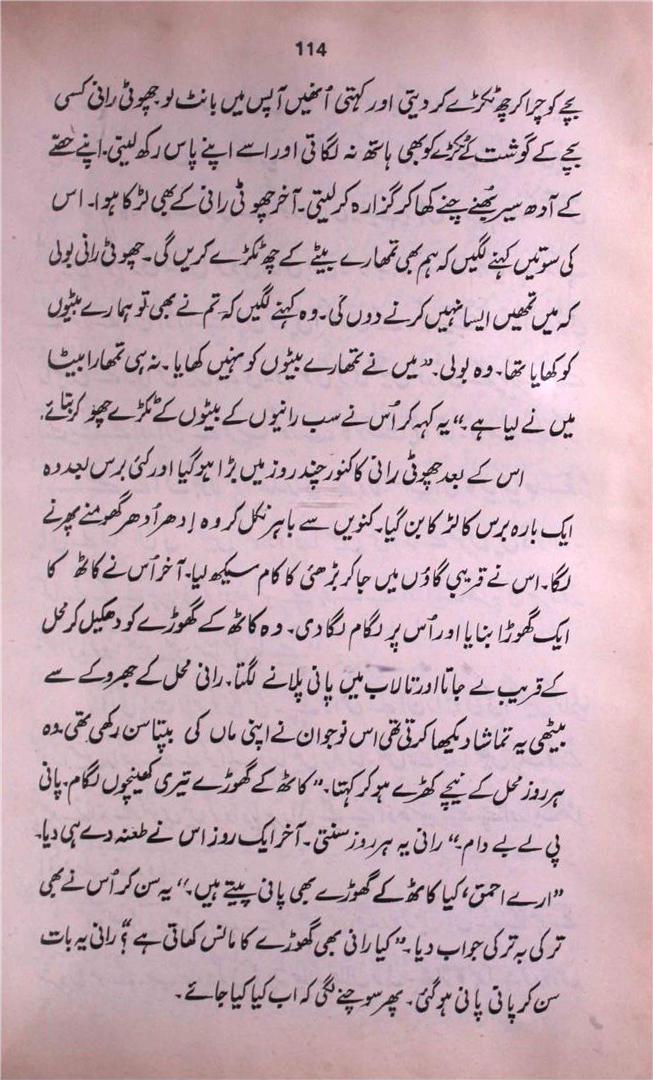 114
بچے کو چرا کر چھ ٹکڑے کر دیتی اور کہتی اُنھیں آپس میں بانٹ لو چھوٹی رانی کسی
بچے کے گوشت کے ٹکڑے کو بھی ہاتھ نہ لگاتی اور اسے اپنے پاس رکھ لیتی۔ اپنے حصّے
کے آدھ سیر بھُنے چنے کھا کر گزارہ کر لیتی۔ آخر چھوٹی رانی کے بھی لڑکا ہوا۔ اس
کی سوتیں کہنے لگیں کہ ہم بھی تمھارے بیٹے کے چھ ٹکڑے کریں گی۔ چھوٹی رانی بولی
کہ میں تمھیں ایسا نہیں کرنے دوں گی۔ وہ کہنے لگیں کہ تم نے بھی تو ہمارے بیٹوں
کو کھایا تھا۔ وہ بولی۔ ”میں نے تمھارے بیٹوں کو نہیں کھایا۔ نہ ہی تمھارا بیٹا
میں نے لیا ہے۔“ یہ کہہ کر اُس نے سب رانیوں کے بیٹوں کے ٹکڑے
اس کے بعد چھوٹی رانی کا کنور چند روز میں بڑا ہو گیا اور کئی برس بعد وہ
ایک بارہ برس کا لڑکا بن گیا۔ کنویں سے باہر نکل کر وہ اِدھر اُدھر گھومنے پھرنے
لگا۔ اس نے قریبی گاؤں میں جا کر بڑھئی کا کام سیکھ لیا۔ آخر اُس نے کاٹھ کا
ایک گھوڑا بنایا اور اُس پر لگام لگا دی۔ وہ کاٹھ کے گھوڑے کو دھکیل کر محل
کے قریب لے جاتا اور تالاب میں پانی پلانے لگتا۔ رانی محل کے جھروکے سے
بیٹھی یہ تماشا دیکھا کرتی تھی اس نوجوان نے اپنی ماں کی بپتا سن رکھی تھی۔ وہ
ہر روز محل کے نیچے کھڑے ہو کر کہتا۔ ”کاٹھ کے گھوڑے تیری کھینچوں لگام، پانی
پی لے بے دام۔“ رانی یہ ہر روز سنتی۔ آخر ایک روز اس نے طعنہ دے ہی دیا۔
”ارے احمق، کیا کاٹھ کے گھوڑے بھی پانی پیتے ہیں۔“ یہ سن کر اُس نے بھی
ترکی بہ ترکی جواب دیا۔ ”کیا رانی بھی گھوڑے کا مانس کھاتی ہے؟“ رانی یہ بات
سن کر پانی پانی ہو گئی۔ پھر سوچنے لگی کہ اب کیا کیا جائے۔